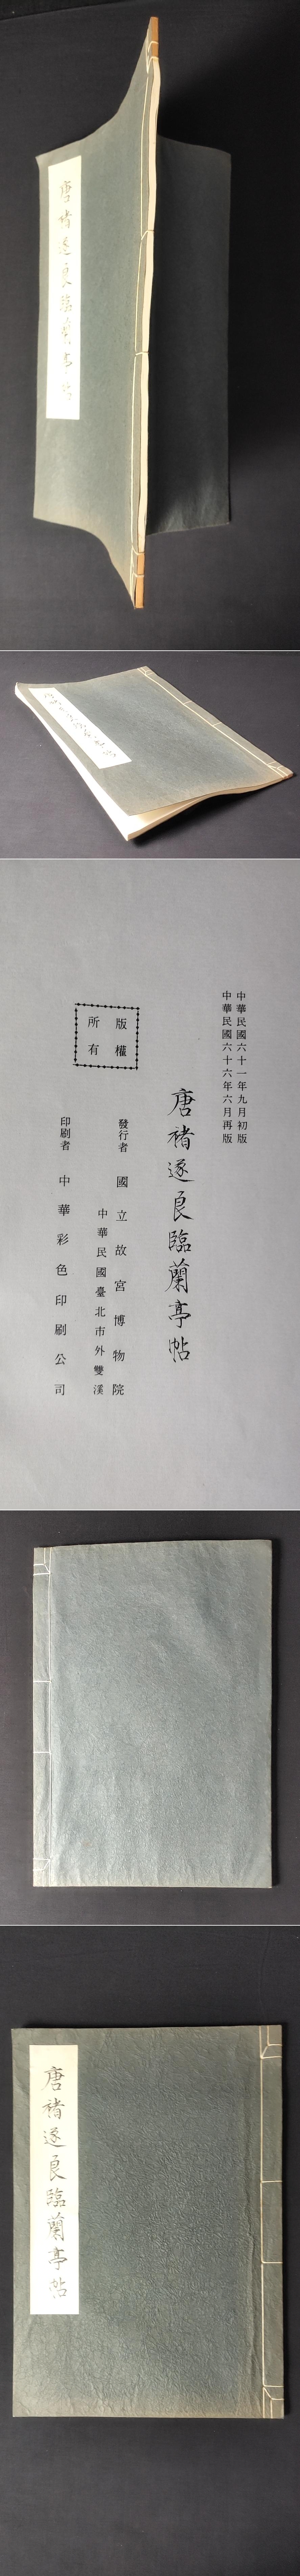 唐褚遂良臨蘭亭帖
唐褚遂良臨蘭亭帖
中華民國六十一年九月初版
中華民國六十六年六月再版
唐褚遂良臨蘭亭帖
版權
所有
發行者 國立故宮博物院
中華民國臺北市外雙溪
印刷者 中華彩色印刷公司
唐褚遂良臨蘭亭帖